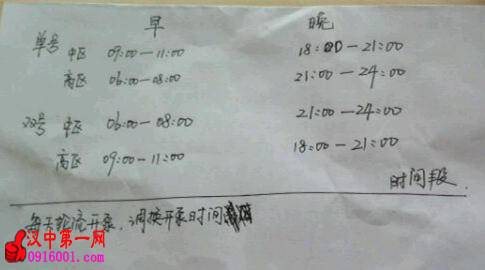 早 晚
单号 中区 09:00—11:00 18:00—21:00
高区 06:00—08:00 21:00—24:00
双号 中区 06:00—08:00 21:00—24:00
高区 09:00—11:00 18:00—21:00
时间段
每天轮流开泵,调换开泵时间
汉中第一网
0916001.com